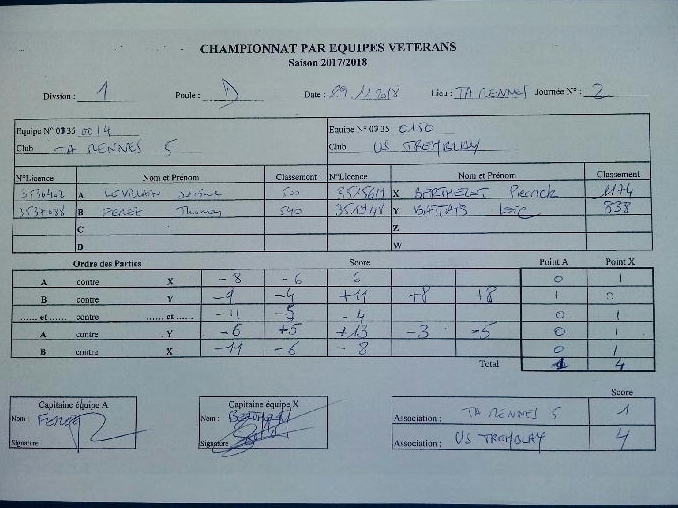 CHAMPIONNAT PAR EQUIPES VETERANS
Saison 2017/2018
Division : 1 Poule : D Date : 29.11.2018 Lieu : TA RENNES Journée N° : 2
Equipe N° 0735 0014 Equipe N° 0735 0150
Club TA RENNES 5 Club US TREMBLAY
N°Licence Nom et Prénom Classement N°Licence Nom et Prénom Classement
A LEVILLAIN 500 X BERTHELOT Pierrick 1174
B PEREZ Thomas 540 Y Loïc 838
C Z
D W
Ordre des Parties Score Point A Point X
A contre X -8 -6 0 1
B contre Y -9 -4 +11 +8 18 1 0
...... et ...... ...... et ...... -11 -5 -4 0 1
A contre Y -6 +5 +13 -3 -5 0 1
B contre X -11 -6 -8 0 1
Total 1 4
Score
Capitaine équipe A Capitaine équipe X
Nom : PEREZ Nom :
Signature Signature
Association : TA RENNES 5 1
Association : US TREMBLAY 4